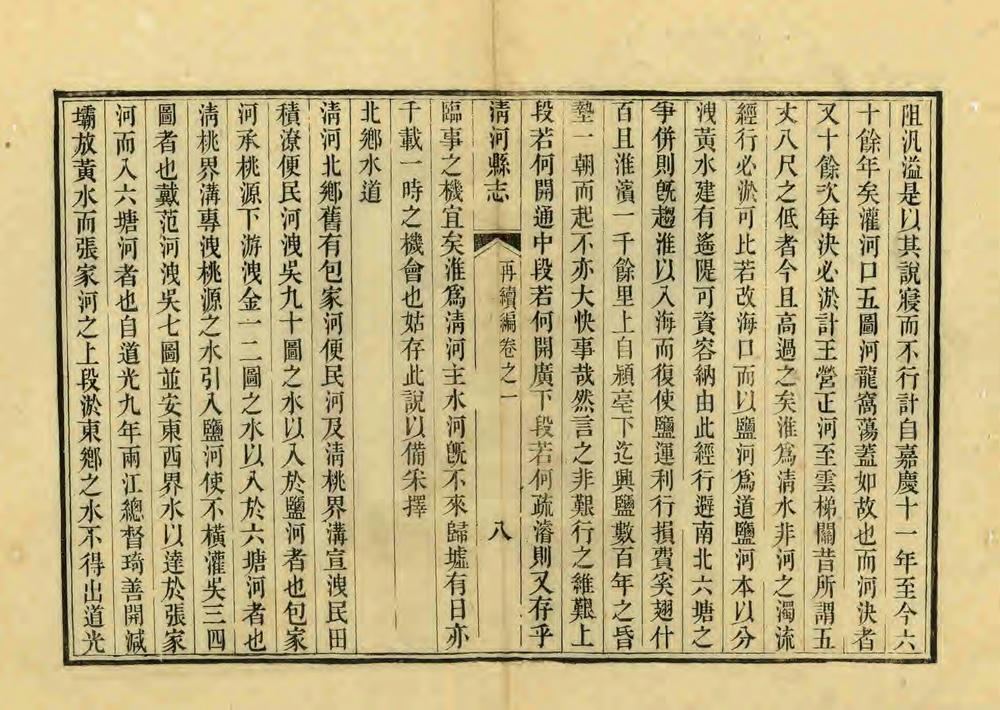 阻汎溢是以其說寢而不行計自嘉慶十一年至今六
十餘年矣灌河口五圖河龍窩蕩蓋如故也而河決者
又十餘次每決必淤計王營正河至雲梯關昔所謂五
丈八尺之低者今且高過之矣淮爲淸水非河之濁流
經行必淤可比若改海口而以鹽河爲道鹽河本以分
洩黃水建有遙隄可資容納由此經行避南北六塘之
爭併則旣趨淮以入海而復使鹽運利行損費奚翅什
百且淮濱一千餘里上自潁亳下迄興鹽數百年之昏
墊一朝而起不亦大快事哉然言之非艱行之維艱上
段若何開通中段若何開廣下段若何疏濬則又存乎
淸河縣志 再續編卷之一 八
臨事之機宜矣淮爲淸河主水河旣不來歸墟有日亦
千載一時之機會也姑存此說以備采擇
北鄉水道
淸河北鄉舊有包家河便民河及淸桃界溝宣洩民田
積潦便民河洩吳九十圖之水以入於鹽河者也包家
河承桃源下游洩金一二圖之水以入於六塘河者也
淸桃界溝專洩桃源之水引入鹽河使不橫灌吳三四
圖者也戴范河洩吳七圖並安東西界水以達於張家
河而入六塘河者也自道光九年兩江總督琦善開減
壩放黃水而張家河之上段淤東鄉之水不得出道光